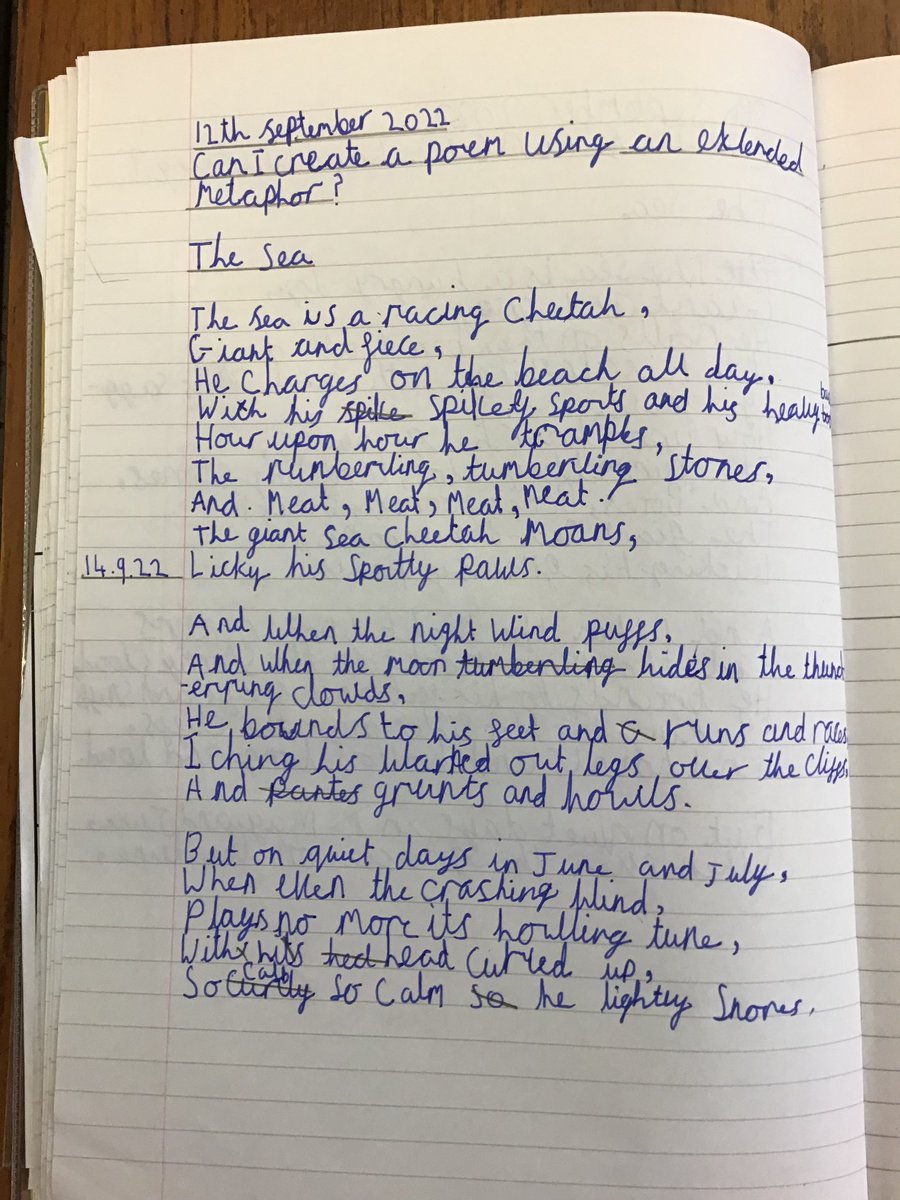 12th September 2022
Can I create a poem using an extended
metaphor?
The Sea
The sea is a racing Cheetah,
Giant and fiece,
He Charges on the beach all day.
With his spike spikety sports and his healvy
Hour upon hour he tramples,
The rumberling, tumberling stones,
And. Meat, Meat, Meat, Meat.
The giant sea Cheetah Moans,
14.9.22 Licky his Sportty paws.
And When the night Wind puffs,
And when the moon tumberling hides in the thund
-erfung clowds,
He bownds to his feet and runs and races
I ching his out legs over the Cliffs,
And Pantes grunts and howls.
But on quiet days in June and July,
When even the crashing wind,
Plays no more its howlling tune,
With hits hed head Curled up,
So Calm so he lightly Snores.